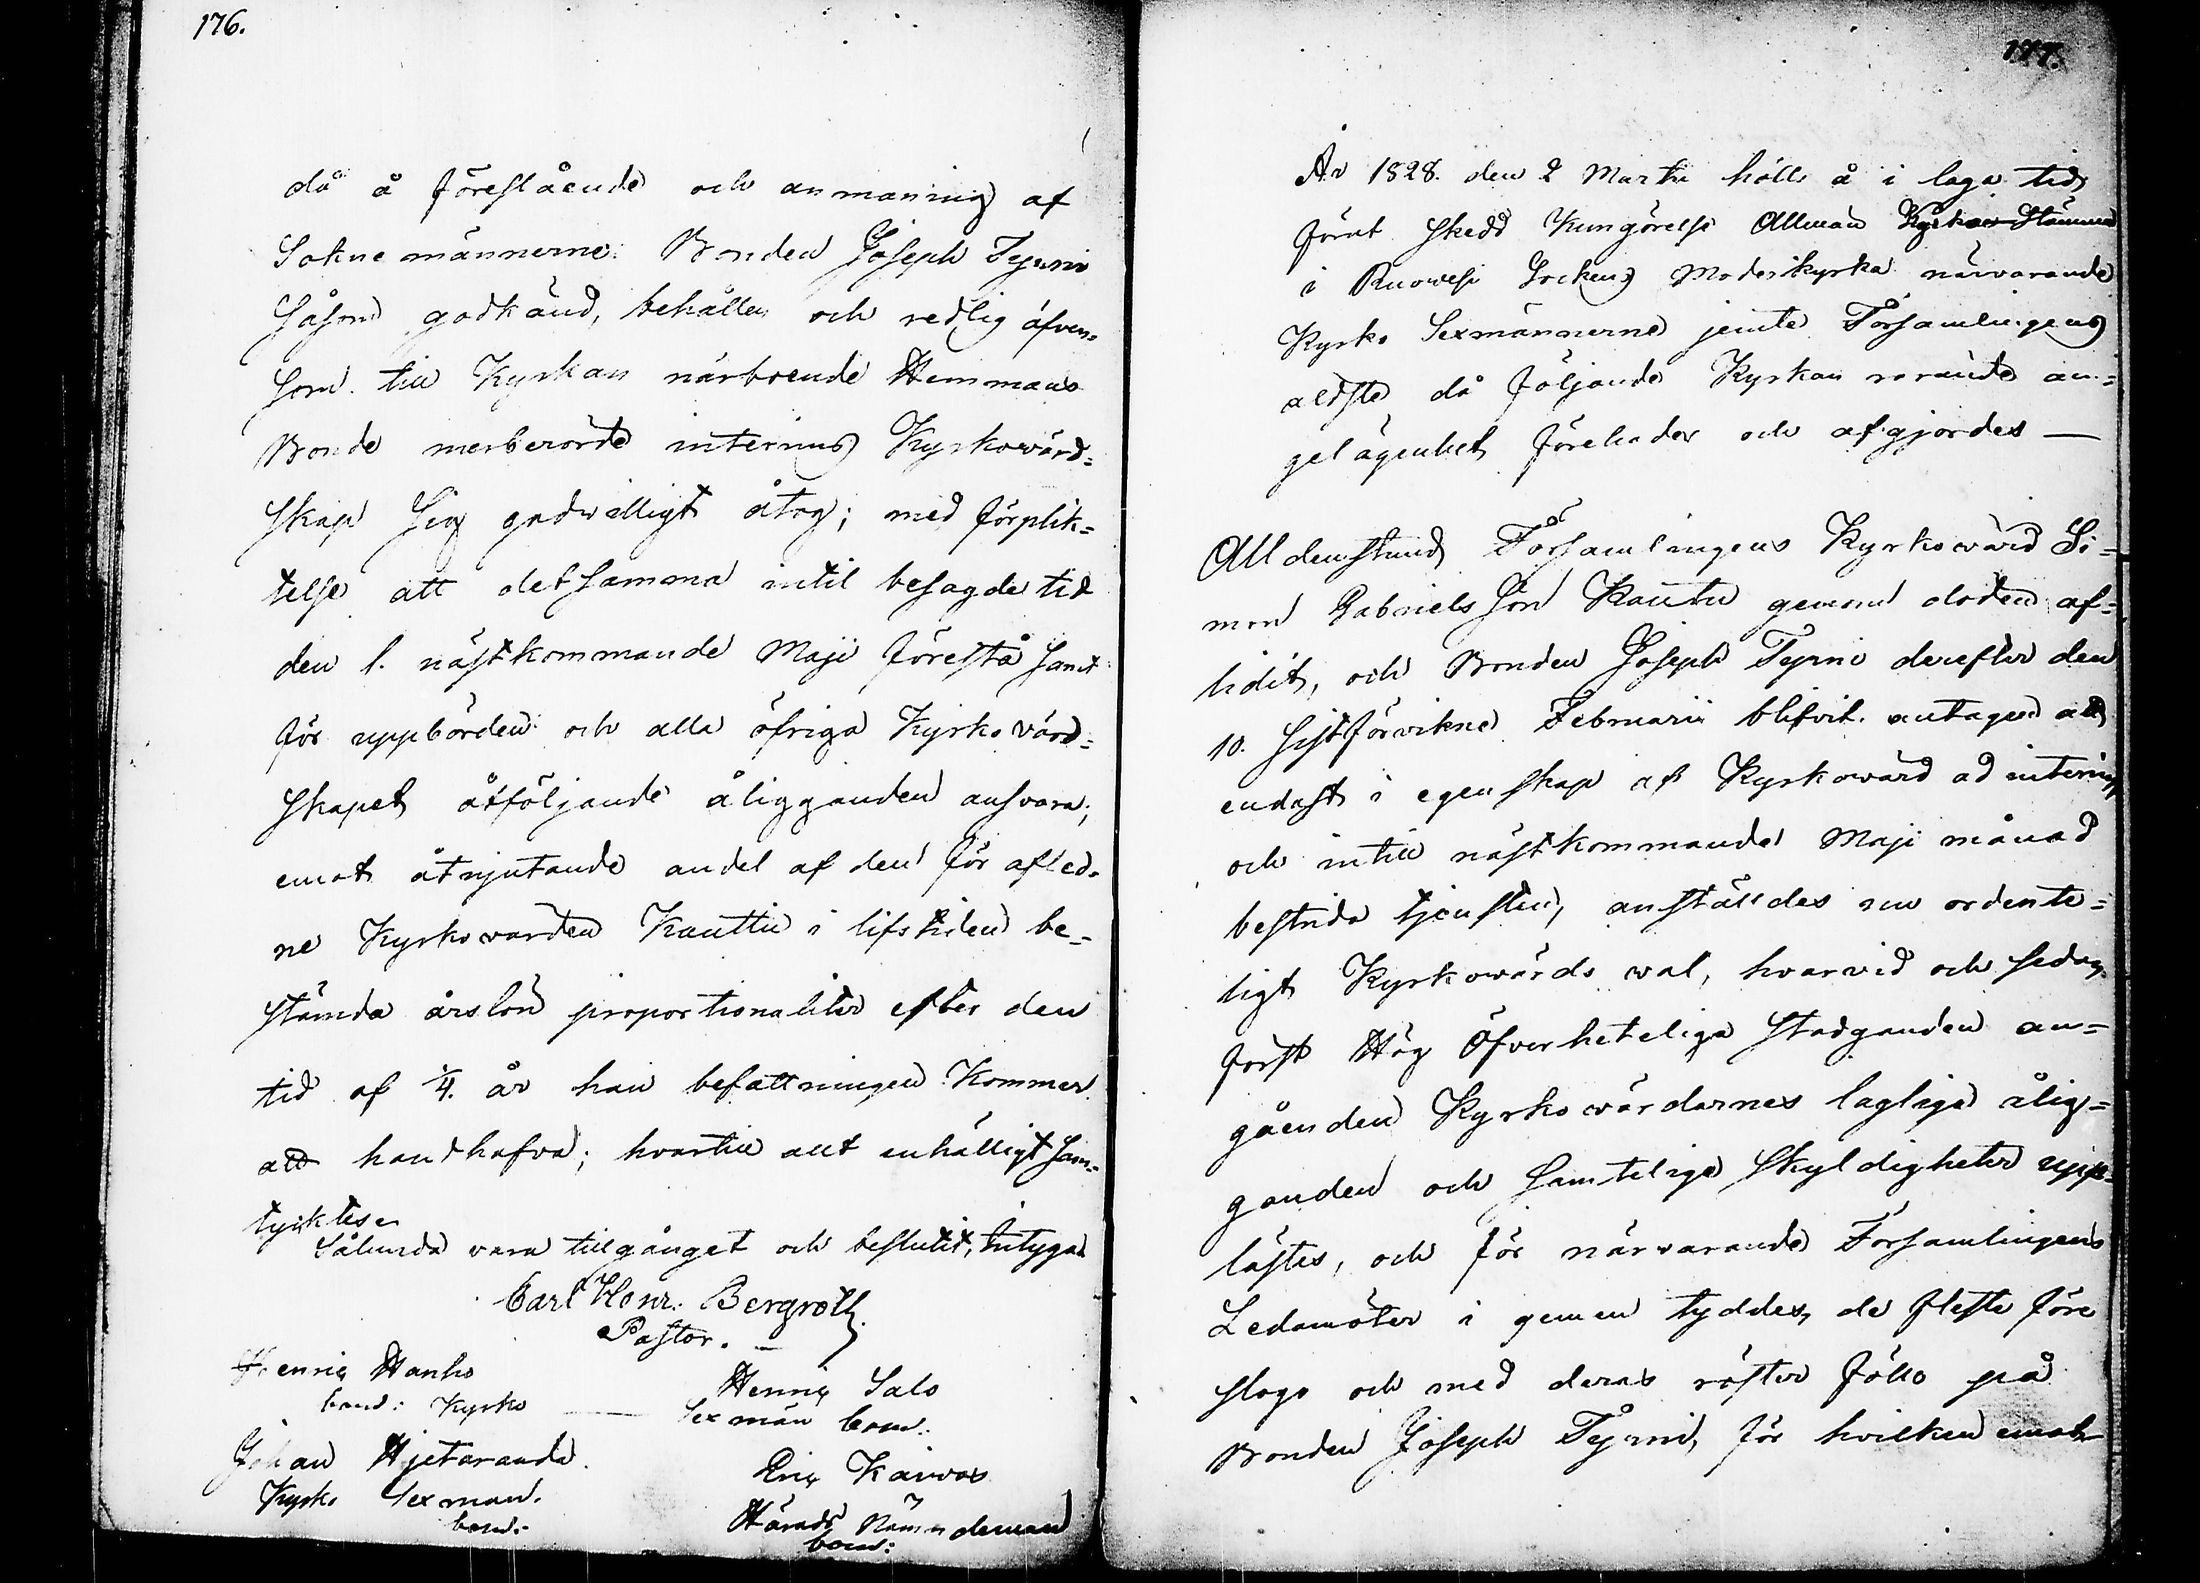 176.
då å föreslående och anmaning af
Sokne männerne: Bonden Joseph Tyrni
Såsom godkänd, behållen och redlig äfven-
som till Kyrkan närboende Hemmans
Bonde merberörde interims Kyrkovärd=
skap Sig godwilligt åtog; med förplik=
telse att detsamma intil besagde tid
den 1. nästkommande Maji förestå samt
för uppbörden och alla öfriga Kyrko värd=
skapet åtföljande åligganden ansvara;
emot åtnjutande andel af den för afled-
ne Kyrkovärden Kauttu i lifstiden be-
stämda årslön proportionaliter efter den
tid af 1/4. år han befattningen kommer
att handhafva; hvartill allt enhälligt sam-
tycktes.
Sålunda vara tillgånget och beslutit, intygar
Carl Henr. Bergroth.
Pastor.
Henric Hanho
bom: Kyrko
Henric Salo
Sexmän bom:
Johan Hjetaranda
Kyrko Sexman.
bom:
Eric Kaivos
Härads Nämndeman
bom:
177.
År 1828. den 2 Martii hölls å i laga tid
förut skedd Kungörelse Allmän Kyrkio Stämma
i Ruowesi Sockens Moderkyrka närvarande
Kyrko Sexmännerne jemte Församlingens
äldste då följande Kyrkan rörande an=
gelägenhet förehades och afgjordes —
Alldenstund Församlingens Kyrkowärd Si=
mon Gabriels Son Kauttu genom döden af=
lidit, och Bonden Joseph Tyrni derefter den
10. sistförvikne Februarii blifvit antagen att
endast i egenskap af Kyrkowärd ad interim
och intill nästkommande Maji månad
bestrida tjensten, anställdes nu ordente=
ligt Kyrkowärds wal, hvarvid och sedan
först Hög Öfverheteliga Stadganden an=
gåenden Kyrko wärdarnes lagliga ålig=
ganden och samtelige skyldigheter upp-
lästes, och för närvarande Församlingens
Ledamöter i gemen tyddes, de fleste före
slogo och med deras röster föllo på
Bonden Joseph Tyrni, för hvilken emot